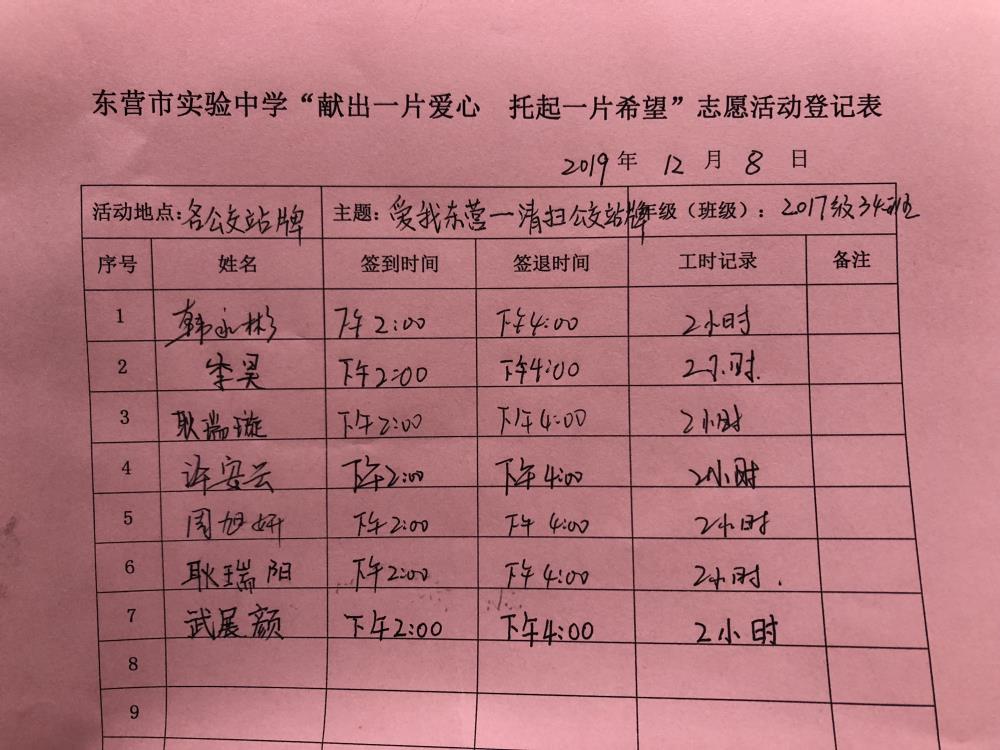 东营市实验中学“献出一片爱心 托起一片希望”志愿活动登记表
2019年 12 月 8 日
活动地点:各公交站牌 主题:爱我东营一清扫公交站牌 年级(班级):2017级34班
序号 姓名 签到时间 签退时间 工时记录 备注
1 韩永彬 下午2:00 下午4:00 2小时
2 李昊 下午2:00 下午4:00 2小时.
3 耿瑞璇 下午2:00 下午4:00 2小时
4 许安云 下午2:00 下午4:00 2小时
5 周旭妍 下午2:00 下午4:00 2小时
6 耿瑞阳 下午2:00 下午4:00 2小时.
7 武展颜 下午2:00 下午4:00 2小时
8
9